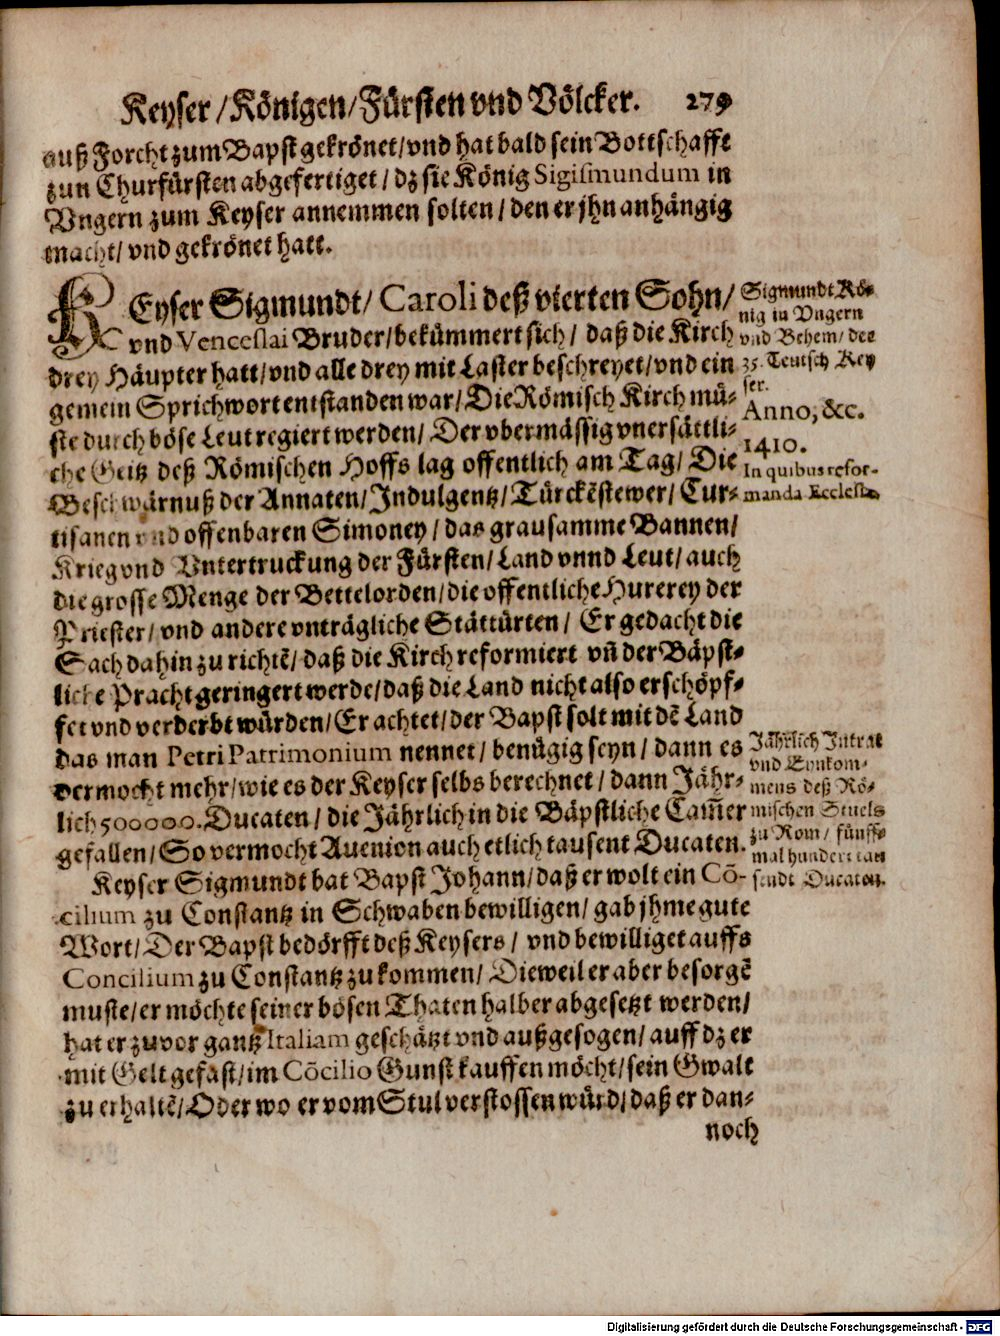 Keyser / Königen / Fürsten vnd Völcker. 279
auß Forcht zum Bapst gekrönet / vnd hat bald sein Bottschafft
zun Churfürsten abgefertiget / dz sie König Sigismundum in
Vngern zum Keyser annemmen solten / den er jhn anhängig
macht / vnd gekrönet hatt.
KEyser Sigmundt / Caroli deß vierten Sohn /
vnd Venceslai Bruder / bekümmert sich / daß die Kirch
drey Häupter hatt / vnd alle drey mit Laster beschreyet / vnd ein
gemein Sprichwort entstanden war / Die Römisch Kirch mü-
ste durch böse Leut regiert werden / Der vbermässig vnersättli-
che Geitz deß Römischen Hoffs lag offentlich am Tag / Die
Beschwärnuß der Annaten / Indulgentz / Türckēstewer / Cur-
tisanen vnd offenbaren Simoney / das grausamme Bannen /
Krieg vnd Vntertruckung der Fürsten / Land vnnd Leut / auch
die grosse Menge der Bettelorden / die offentliche Hurerey der
Priester / vnd andere vnträgliche Stättürten / Er gedacht die
Sach dahin zu richtē / daß die Kirch reformiert vñ der Bäpst-
liche Pracht geringert werde / daß die Land nicht also erschöpf-
fet vnd verderbt würden / Er achtet / der Bapst solt mit dē Land
das man Petri Patrimonium nennet / benügig seyn / dann es
vermocht mehr / wie es der Keyser selbs berechnet / dann Jähr-
lich 500000. Ducaten / die Jährlich in die Bäpstliche Cam̃er
gefallen / So vermocht Auenion auch etlich tausent Ducaten.
Keyser Sigmundt bat Bapst Johann / daß er wolt ein Cō-
cilium zu Constantz in Schwaben bewilligen / gab jhme gute
Wort / Der Bapst bedörfft deß Keysers / vnd bewilliget auffs
Concilium zu Constantz zu kommen / Dieweil er aber besorgē
muste / er möchte seiner bösen Thaten halber abgesetzt werden /
hat er zuvor gantz Italiam geschätzt vnd außgesogen / auff dz er
mit Gelt gefast / im Cōcilio Gunst kauffen möcht / sein Gwalt
zu erhaltē / Oder wo er vom Stul verstossen würd / daß er dan-
noch
Sigmundt Kö-
nig in Vngern
vnd Behem / der
35. Teutsch Key
ser.
Anno, &c.
1410.
In quibus refor-
manda Ecclesia.
Jährlich Intrat
vnd Eynkom-
mens deß Rö-
mischen Stuels
zu Rom / fünff-
mal hundert tau
sendt Ducaten.
Digitalisierung gefördert durch die Deutsche Forschungsgemeinschaft - DFG